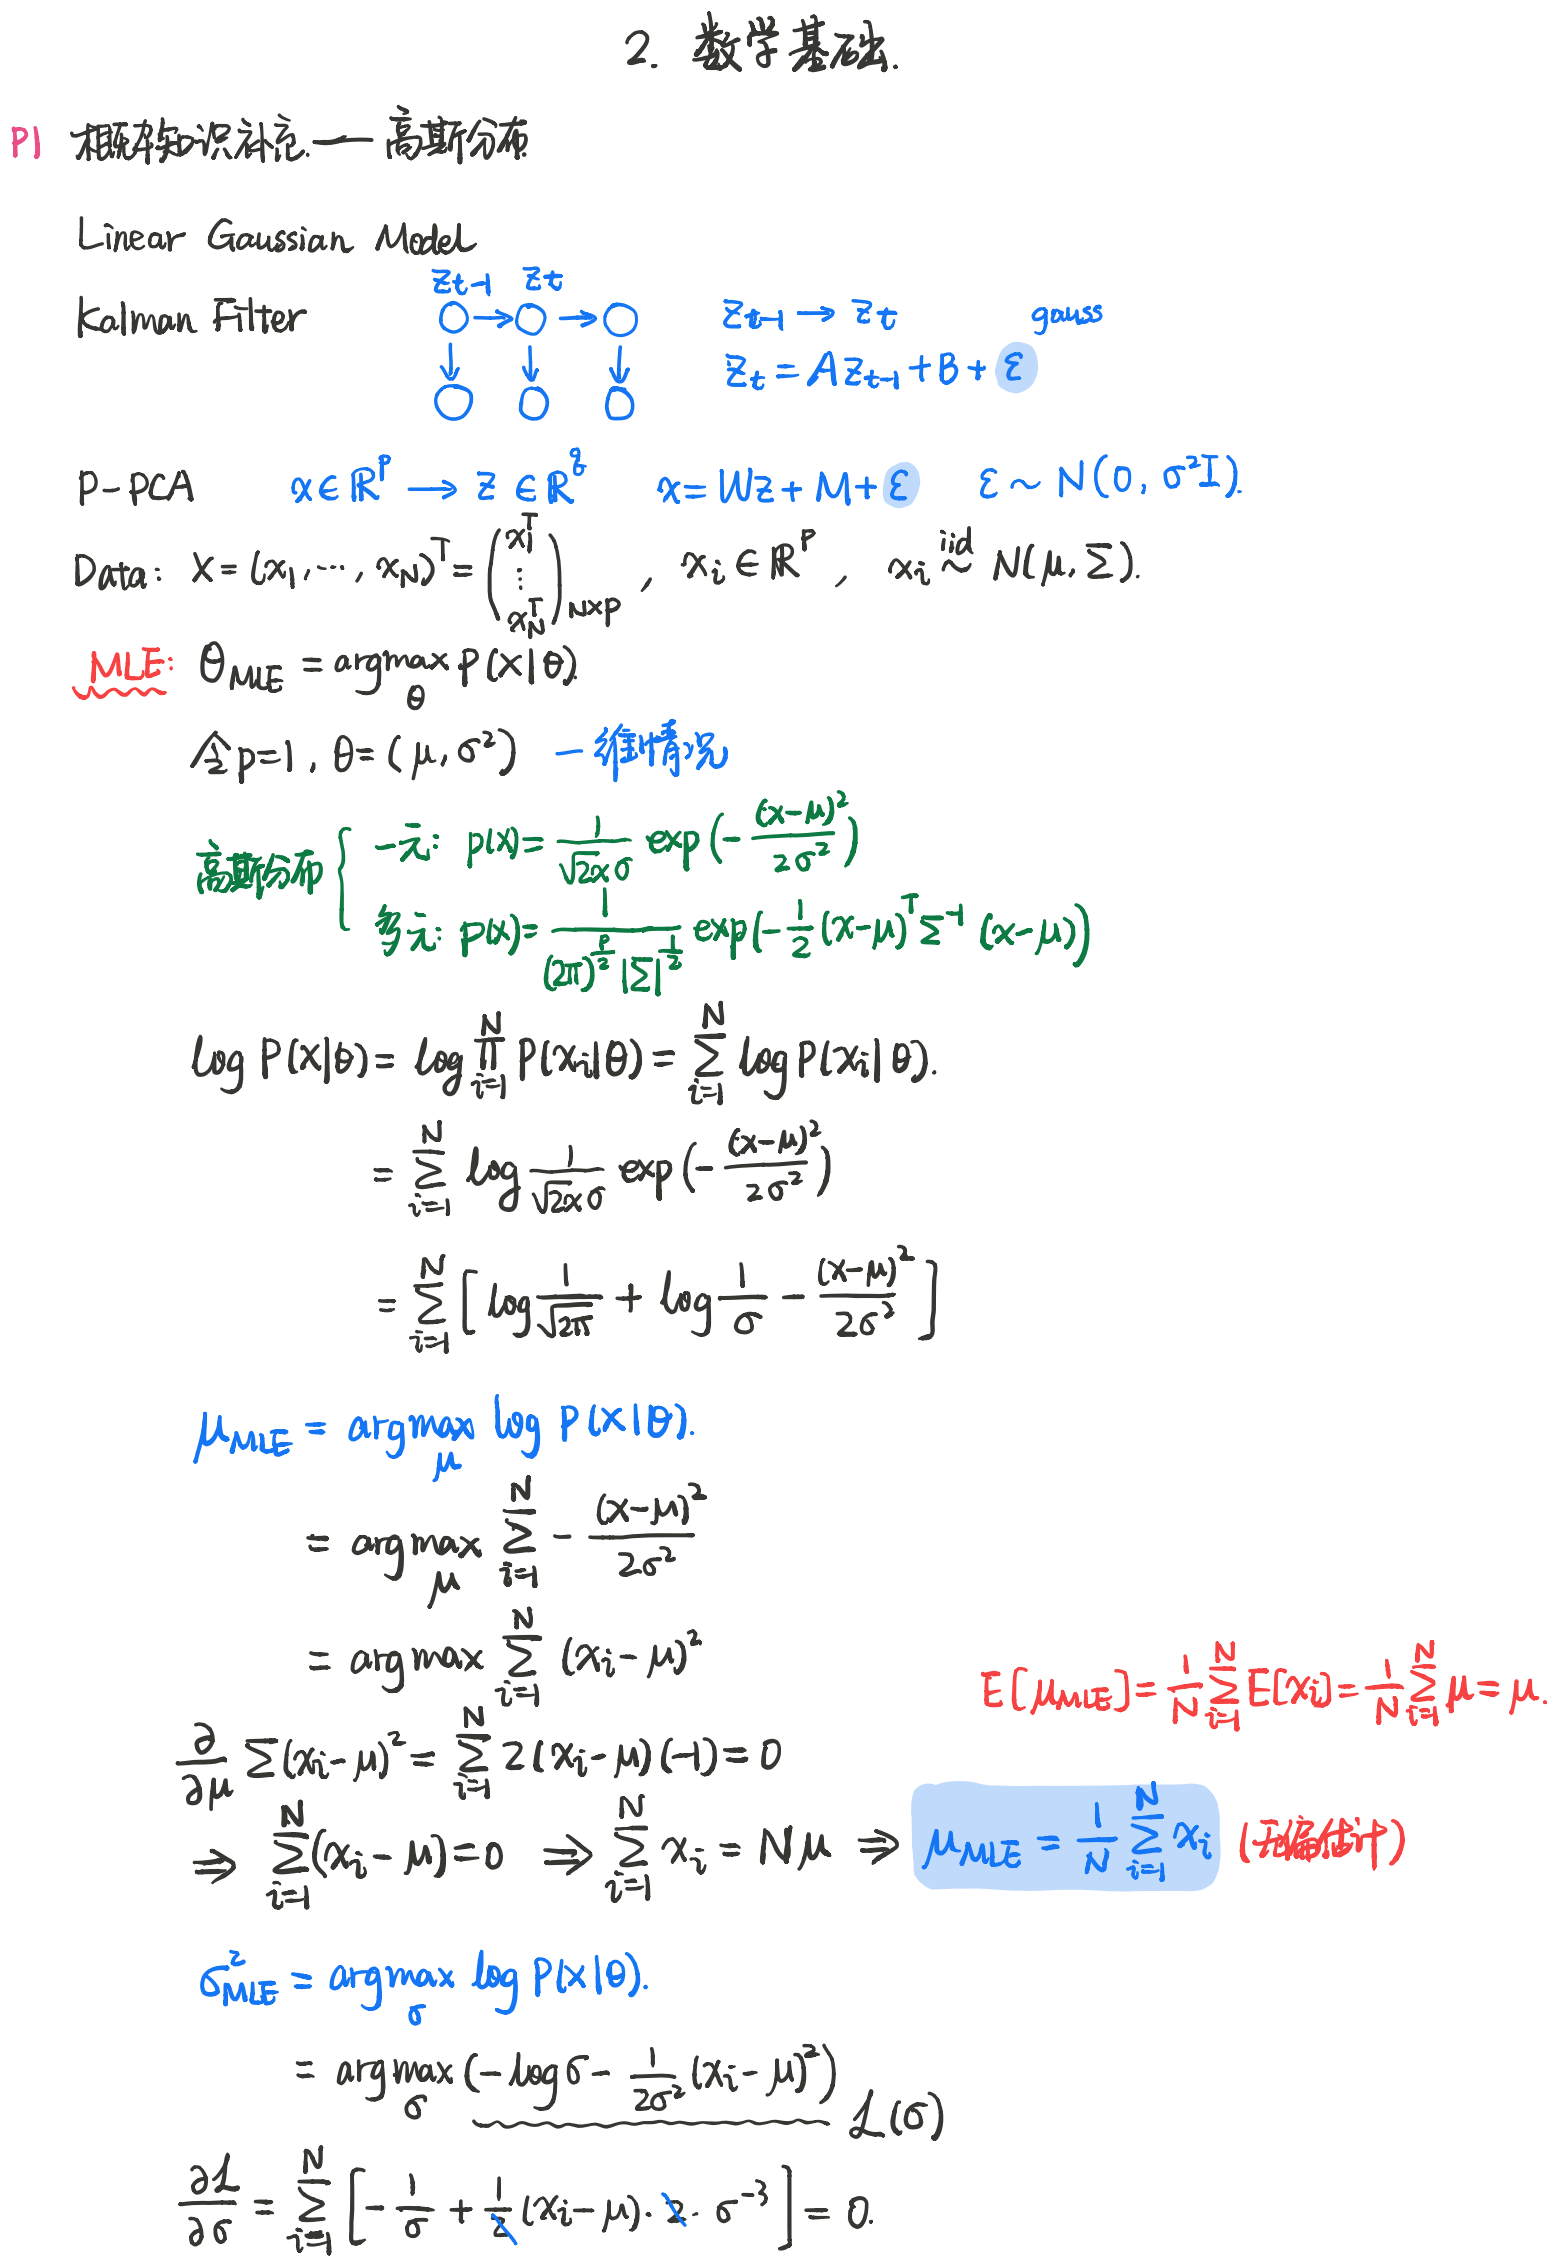 2. 数学基础.
P1 概率知识补充.— 高斯分布
Linear Gaussian Model
Kalman Filter
Zt-1 Zt
Zt-1 → Zt gauss
Zt = AZt-1 + B + ε
P-PCA x∈ℝᵖ → Z ∈ℝ^q x = WZ + M + ε ε ~ N(0, σ²I).
Data: X = (x₁, ⋯, x_N)ᵀ = (x₁ᵀ ⋮ x_Nᵀ)_N×P , xᵢ ∈ ℝᵖ , xᵢ ~iid N(μ, Σ).
MLE: θ_MLE = argmax_θ P(X|θ).
令p=1, θ=(μ, σ²) 一维情况
高斯分布 { 一元: p(x) = 1/(√2π σ) exp(-(x-μ)²/2σ²)
多元: p(x) = 1/((2π)^(p/2) |Σ|^(1/2)) exp(-1/2 (x-μ)ᵀ Σ⁻¹ (x-μ))
log P(X|θ) = log ∏_{i=1}^N P(xᵢ|θ) = Σ_{i=1}^N log P(xᵢ|θ).
= Σ_{i=1}^N log 1/(√2π σ) exp(-(x-μ)²/2σ²)
= Σ_{i=1}^N [log 1/√2π + log 1/σ - (x-μ)²/2σ²]
μ_MLE = argmax_μ log P(X|θ).
= argmax_μ Σ_{i=1}^N - (x-μ)²/2σ²
= argmax Σ_{i=1}^N (xᵢ-μ)²
E[μ_MLE] = 1/N Σ_{i=1}^N E[xᵢ] = 1/N Σ_{i=1}^N μ = μ.
∂/∂μ Σ(xᵢ-μ)² = Σ_{i=1}^N 2(xᵢ-μ)(-1) = 0
⇒ Σ_{i=1}^N (xᵢ-μ) = 0 ⇒ Σ_{i=1}^N xᵢ = Nμ ⇒ μ_MLE = 1/N Σ_{i=1}^N xᵢ (无偏估计)
σ²_MLE = argmax_σ log P(X|θ).
= argmax_σ (-log σ - 1/2σ² (xᵢ-μ)²) ℒ(σ)
∂ℒ/∂σ = Σ_{i=1}^N [-1/σ + 1/2 (xᵢ-μ)·2·σ⁻³] = 0.